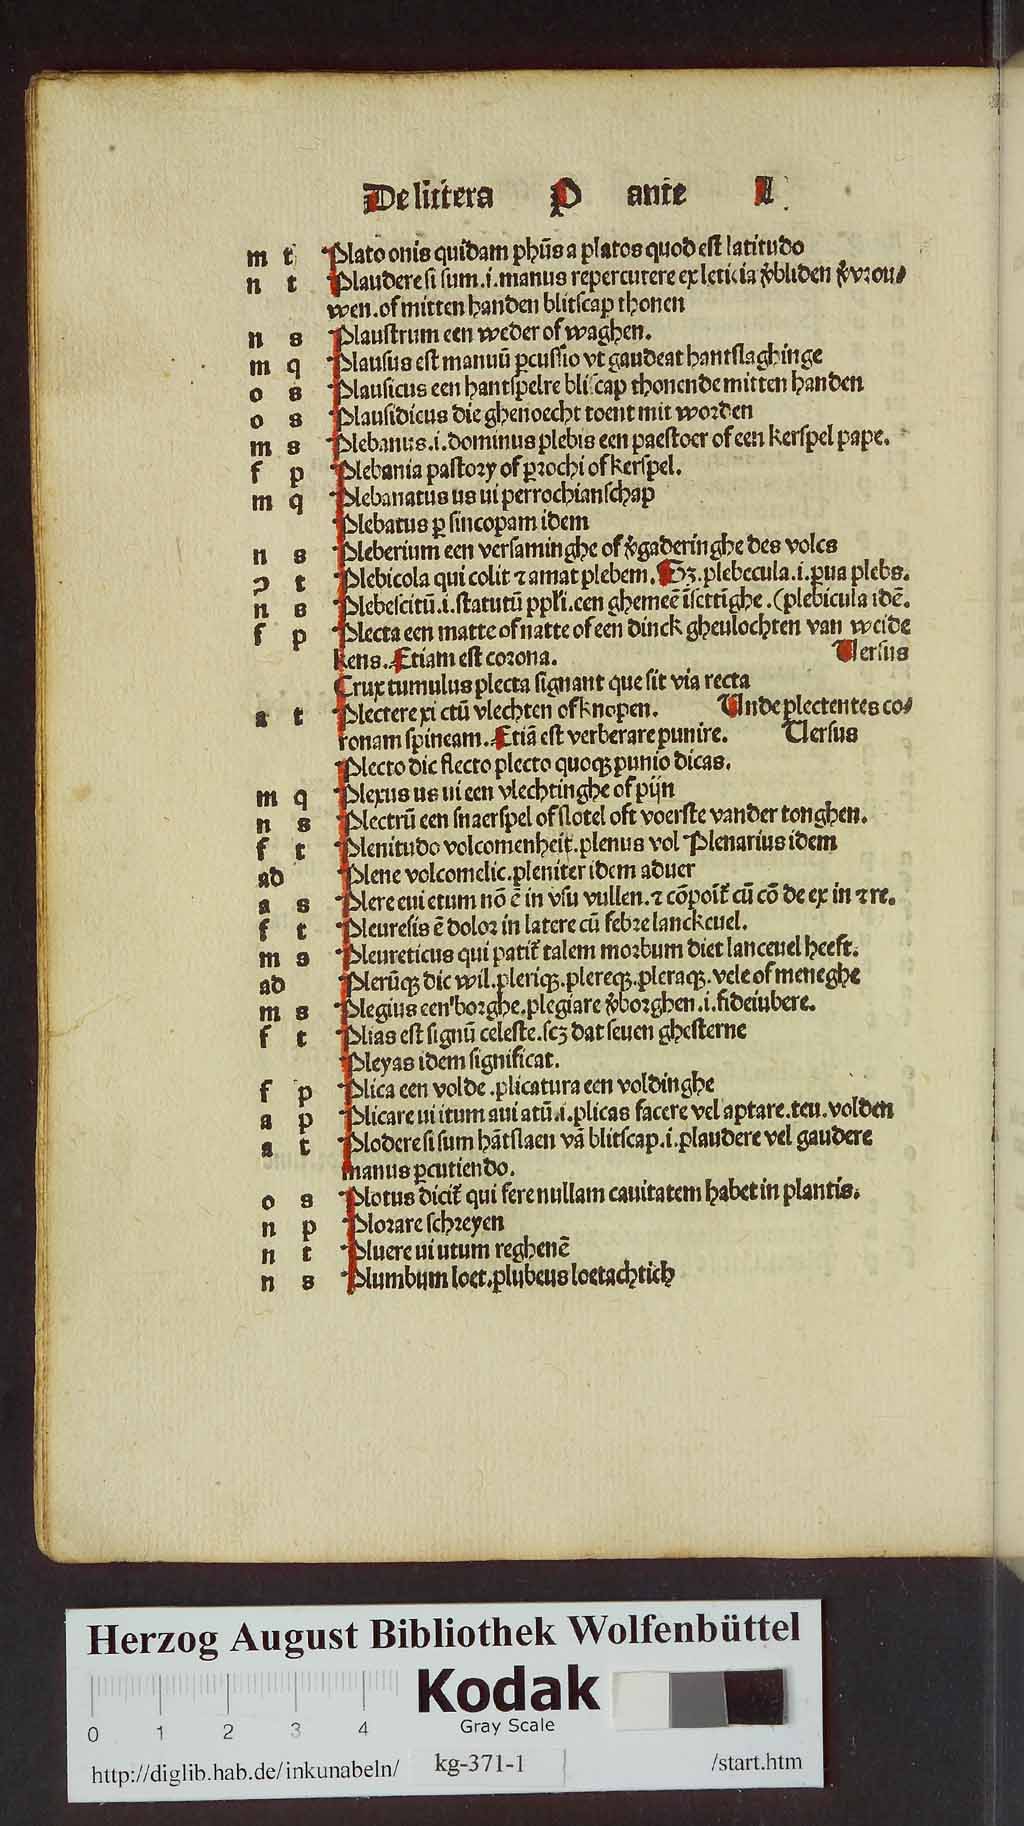 De littera P ante L
m t Plato onis quidam phūs a platos quod est latitudo
n t Plaudere si sum .i. manus repercutere ex leticia v̄bliden v̄vrou⸗
wen. of mitten handen blitscap thonen
n s Plaustrum een weder of waghen.
m q Plausus est manuū ꝑcussio vt gaudeat hantslaghinge
o s Plausicus een hantspelre bliscap thonende mitten handen
o s Plausidicus die ghenoecht toent mit worden
m s Plebanus .i. dominus plebis een paestoer of een kerspel pape.
f p Plebania pastory of ꝑrochi of kerspel.
m q Plebanatus us ui perrochianschap
Plebatus ꝑ sincopam idem
n s Pleberium een versaminghe of v̄gaderinghe des volcs
ↄ t Plebicola qui colit ⁊ amat plebem. Sꝫ. plebecula .i. ꝑua plebs.
n s Plebescitū .i. statutū ppłi. een ghemeē īsettīghe. (plebicula idē.
f p Plecta een matte of natte of een dinck gheulochten van weide
kens. Etiam est corona. Versus
Crux tumulus plecta signant que sit via recta
a t Plectere xi ctū vlechten of knopen. Unde plectentes co⸗
ronam spineam. Etiā est verberare punire. Versus
Plecto dic flecto plecto quoqꝫ punio dicas.
m q Plexus us ui een vlechtinghe of pijn
n s Plectrū een snaerspel of slotel oft voerste vander tonghen.
f t Plenitudo volcomenheit. plenus vol Plenarius idem
ad Plene volcomelic. pleniter idem aduer
a s Plere eui etum nō ē in vsu vullen. ⁊ cōpoīt̄ cū cō de ex in ⁊ re.
f t Pleuresis ē dolor in latere cū febre lanckeuel.
m s Pleureticus qui patit̄ talem morbum diet lanceuel heeft.
ad Plerūqꝫ dic wil. pleriqꝫ. plereqꝫ. pleraqꝫ. vele of meneghe
m s Plegius een borghe. plegiare v̄borghen .i. fideiubere.
f t Plias est signū celeste. scꝫ dat seuen ghesterne
Pleyas idem significat.
f p Plica een volde. plicatura een voldinghe
a p Plicare ui itum aui atū .i. plicas facere vel aptare. teu. volden
a t Plodere si sum hātslaen vā blitscap .i. plaudere vel gaudere
manus ꝑcutiendo.
o s Plotus dicit̄ qui fere nullam cauitatem habet in plantis.
n p Plorare schreyen
n t Pluere ui utum reghenē
n s Plumbum loet. plūbeus loetachtich
Herzog August Bibliothek Wolfenbüttel
Kodak
Gray Scale
0 1 2 3 4
http://diglib.hab.de/inkunabeln/ kg-371-1 /start.htm